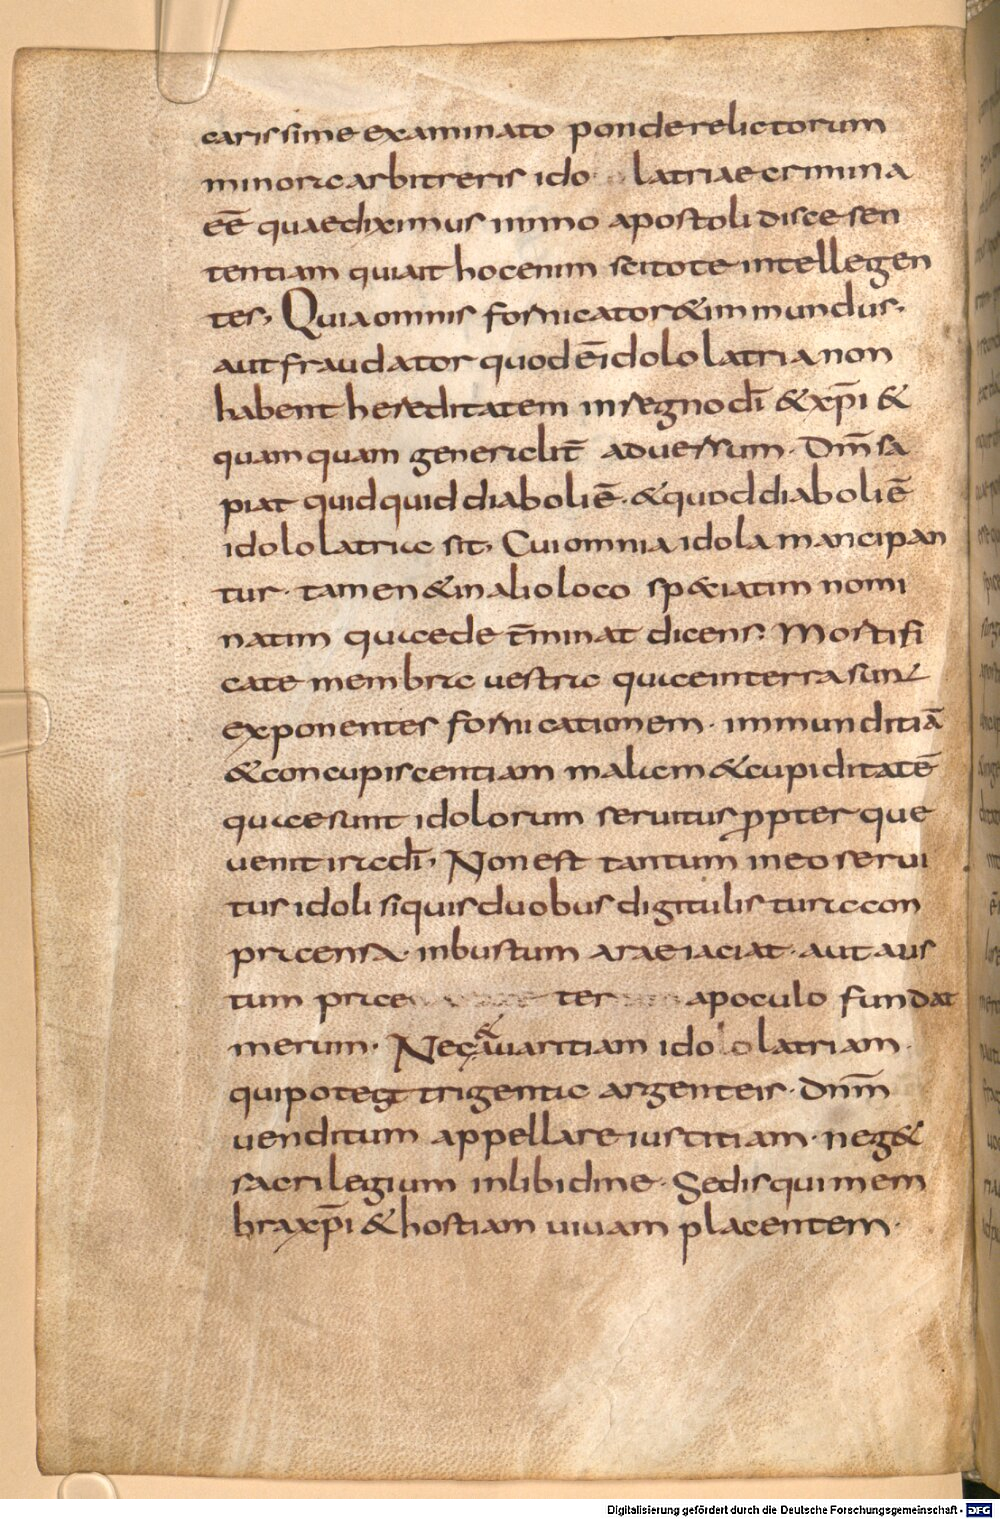 carissime examinato pondere lictorum
minora arbitreris ido latriae crimina
eē quae diximus immo apostoli disce sen
tentiam qui ait hoc enim scitote intellegen
tes, Quia omnis fornicator & immundus.
aut fraudator quod ē idololatria non
habent hereditatem in regno dī & xp̄i &
quamquam generalit̄ aduersum. Dm̄ sa
piat quidquid diaboli ē. & quod diaboli ē
idololatriae sit, Cui omnia idola mancipan
tur. tamen & in alio loco sp&iatim nomi
natim quae det̄minat dicens. Mortifi
cate membra uestra quae in terra sunt
exponentes fornicationem. immunditiā
& concupiscentiam malam & cupiditatē
quae sunt idolorum seruitus ꝓpter que
uenit ira dī, Non est tantum in eo serui
tus idoli si quis duobus digitulis tura con
praensa. in bustum arae iaciat. aut aus
tum prae ter a poculo fundat
merum. Neg& auaritiam idololatriam.
qui poteſt triginta argenteis. Dnm̄
uenditum appellare iustitiam. neg&
sacrilegium in libidine. Sed is qui mem
bra xp̄i & hostiam uiuam placentem.